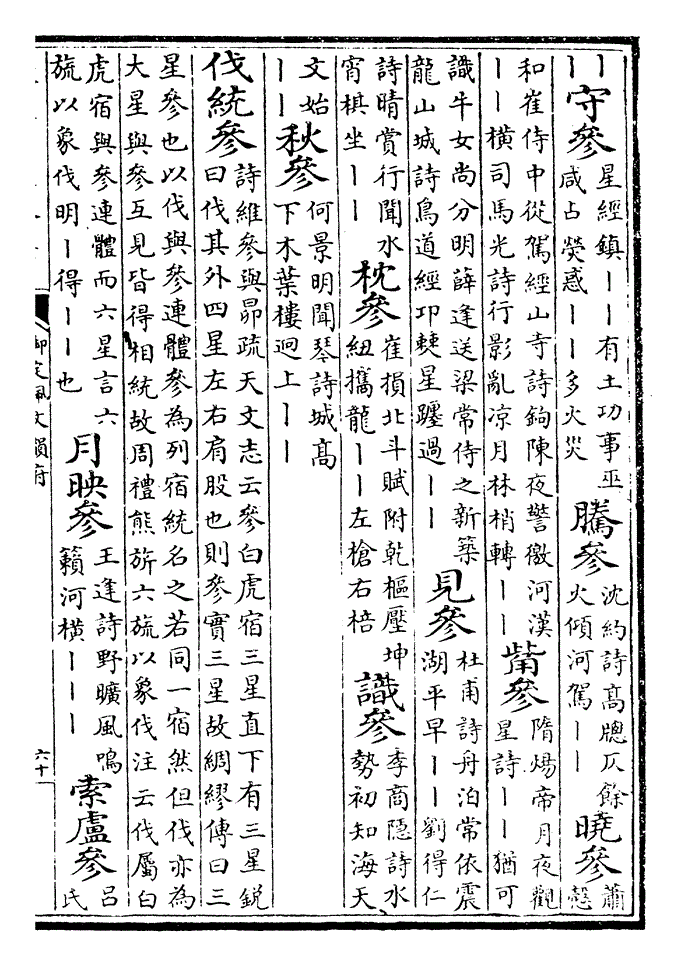 ｜守參星經鎭｜｜有土功事巫
｜咸占熒惑｜｜多火災
騰參沈約詩高牕仄餘
火傾河駕｜｜
曉參蕭
慤
和崔侍中從駕經山寺詩鉤陳夜警徼河漢
｜橫司馬光詩行影亂凉月林梢轉｜｜
觜參隋煬帝月夜觀
星詩｜｜猶可
識牛女尚分明薛逢送梁常侍之新築
龍山城詩鳥道經邛僰星躔過｜｜
見參杜甫詩舟泊常依震
湖平早｜｜劉得仁
詩晴賞行聞水
宵棋坐｜｜
枕參崔損北斗賦附乾樞壓坤
紐攜龍｜｜左槍右棓
識參李商隱詩水
勢初知海天
文始
｜｜
秋參何景明聞琴詩城高
下木葉樓迥上｜｜
伐統參詩維參與昴疏天文志云參白虎宿三星直下有三星銳
曰伐其外四星左右肩股也則參實三星故綢繆傳曰三
星參也以伐與參連體參為列宿統名之若同一宿然但伐亦為
大星與參互見皆得相統故周禮熊旂六旒以象伐注云伐屬白
虎宿與參連體而六星言六
旒以象伐明｜得｜｜也
月映參王逢詩野曠風鳴
籟河橫｜｜｜
索盧參呂
氏
御定佩文韻府
六十